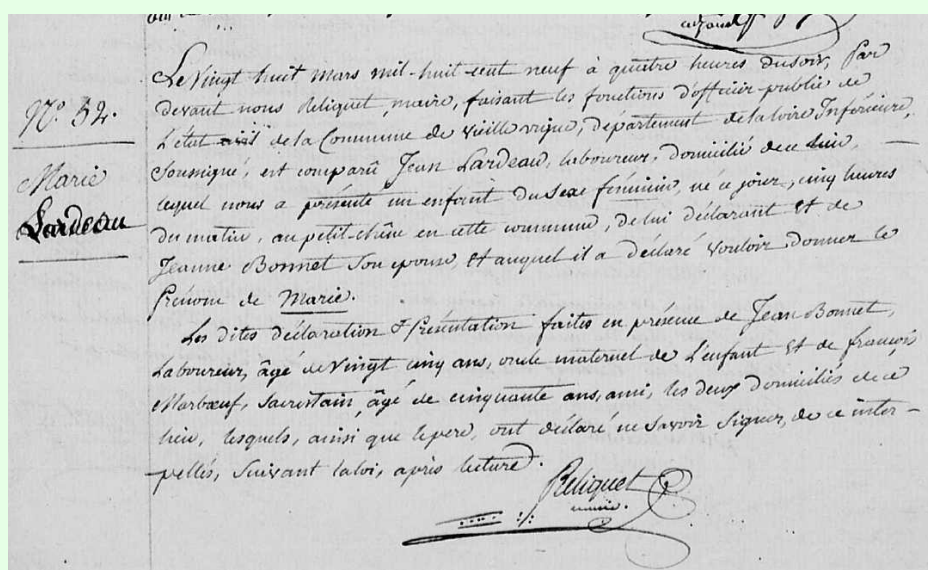 Le vingt huit mars mil-huit-cent neuf à quatre heures du soir, Par
devant nous Reliquet, maire, faisant les fonctions d'officier public de
N.o 52.
L'état civil de la Commune de vieille vigne, département de la loire Inférieure,
Soussigné, est comparû Jean Lardeau, laboureur, domicilié de ce lieu,
Marie
lequel nous a présenté un enfant du Sexe féminin, né ce jour, cinq heures
Lardeau
du matin, au petit-chêne en cette commune, de lui déclarant et de
Jeanne Bonnet Son epouse, et auquel il a déclaré vouloir donner le
Prénom de Marie.
Les dites déclaration & Présentation faites en présence de Jean Bonnet,
Laboureur, âgé de vingt cinq ans, oncle maternel de L'enfant et de françois
Marboeuf, Sacristain, âgé de cinquante ans, ami, les deux domiciliés de ce
lieu, lesquels, ainsi que le pere, ont déclaré ne Savoir Signer, de ce inter-
-pellés, Suivant la loi, après lecture.
Reliquet
maire.